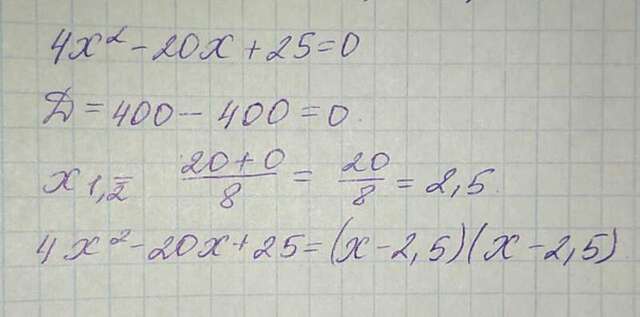 4x² - 20x + 25 = 0
Д = 400 - 400 = 0.
x 1,2 = (20 + 0)/8 = 20/8 = 2,5.
4x² - 20x + 25 = (x - 2,5)(x - 2,5)